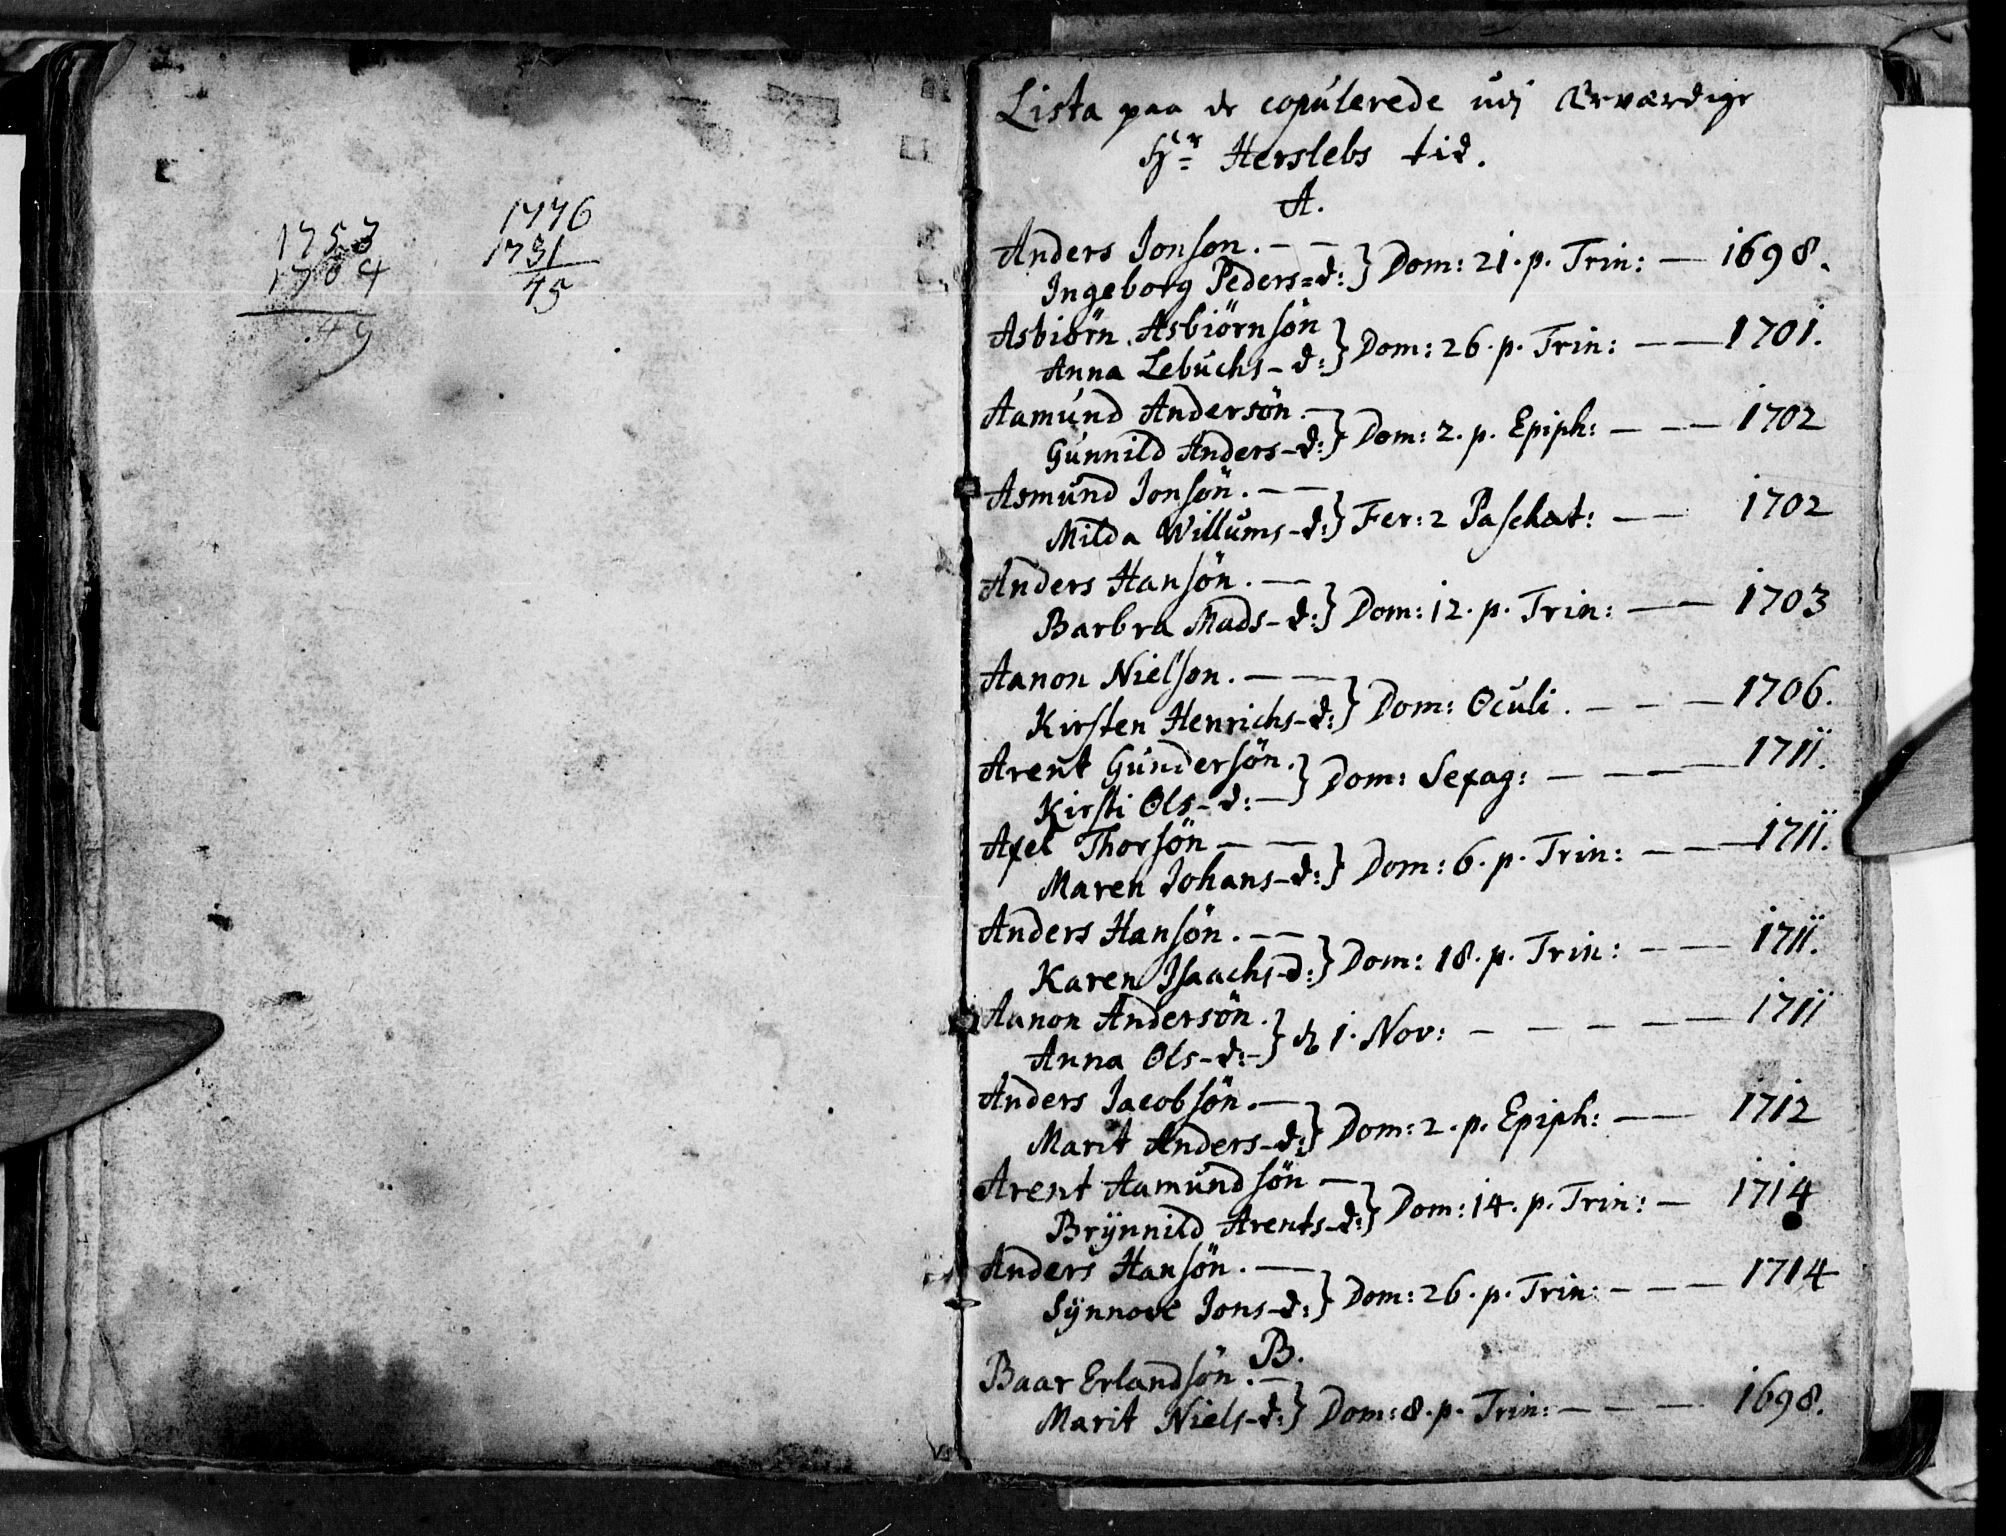 1753
1704
49
1776
1731
45
Lista paa de copulerede udj Ærværdige
Hr Herslebs tid.
A.
Anders Jonsøn. — —
Ingeborg Peders=d: } Dom: 21. p. Trin: — 1698.
Asbiörn Asbiörnsön
Anna Lebuchs-d: } Dom: 26. p. Trin: — — 1701.
Aamund Andersön.
Gunnild Anders-d: } Dom: 2. p. Epiph: — — — 1702
Asmund Jonsön. — —
Milda Willums-d: } Fer: 2 Paschat: — — 1702
Anders Hansön. — —
Barbra Mads-d: } Dom: 12. p. Trin: — — 1703
Aanon Nielson. — —
Kirsten Henrichs-d: } Dom: Oculi. — — — 1706.
Arent Gundersön.
Kirsti Ols-d: — } Dom: Sexag: — — — — 1711.
Axel Thorsön — —
Maren Johans-d: } Dom: 6. p. Trin: — — — 1711.
Anders Hansön. — —
Karen Isaachs-d: } Dom: 18. p. Trin: — — — 1711.
Aanon Andersön.
Anna Ols-d:- } d. 1. Nov: — — — — — 1711
Anders Jacobsön. —
Marit Anders-d: } Dom: 2. p. Epiph: — — 1712
Arent Aamundsön —
Brÿnnild Arents-d: } Dom: 14. p. Trin: — 1714
Anders Hansön. —
Sÿnnove Jons-d: } Dom: 26. p. Trin: — — — 1714
B.
Baar Erlandsön. —
Marit Niels-d: } Dom: 8. p. Trin: — — — 1698.